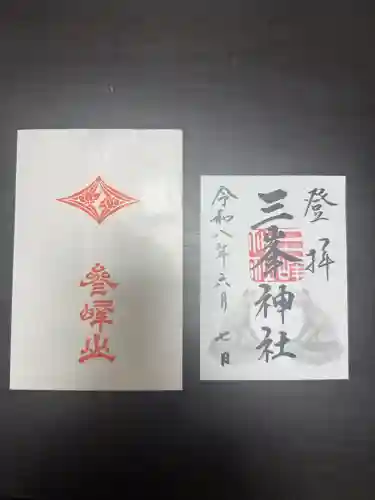 參峰山
登拝
三峯神社
令和八年六月七日